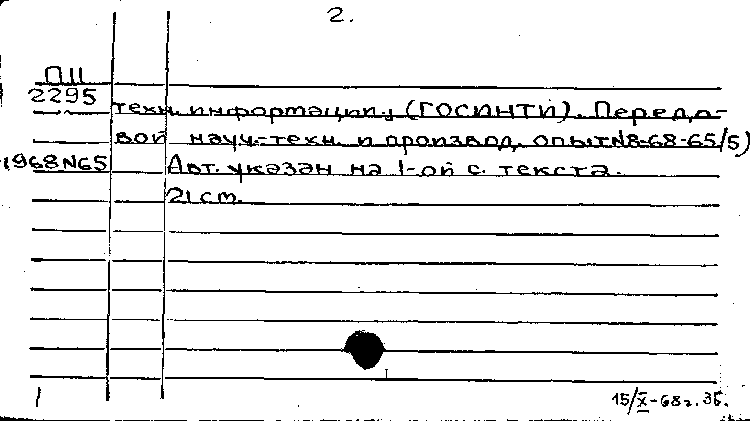 2.
П11
2295
техн. информации (ГОСИНТИ). Передо-
вой науч.-техн. и производ. опыт №8-68-65/5)
1968N65
Авт. указан на 1-ой с. текста.
21 cm.
15/X-68г.